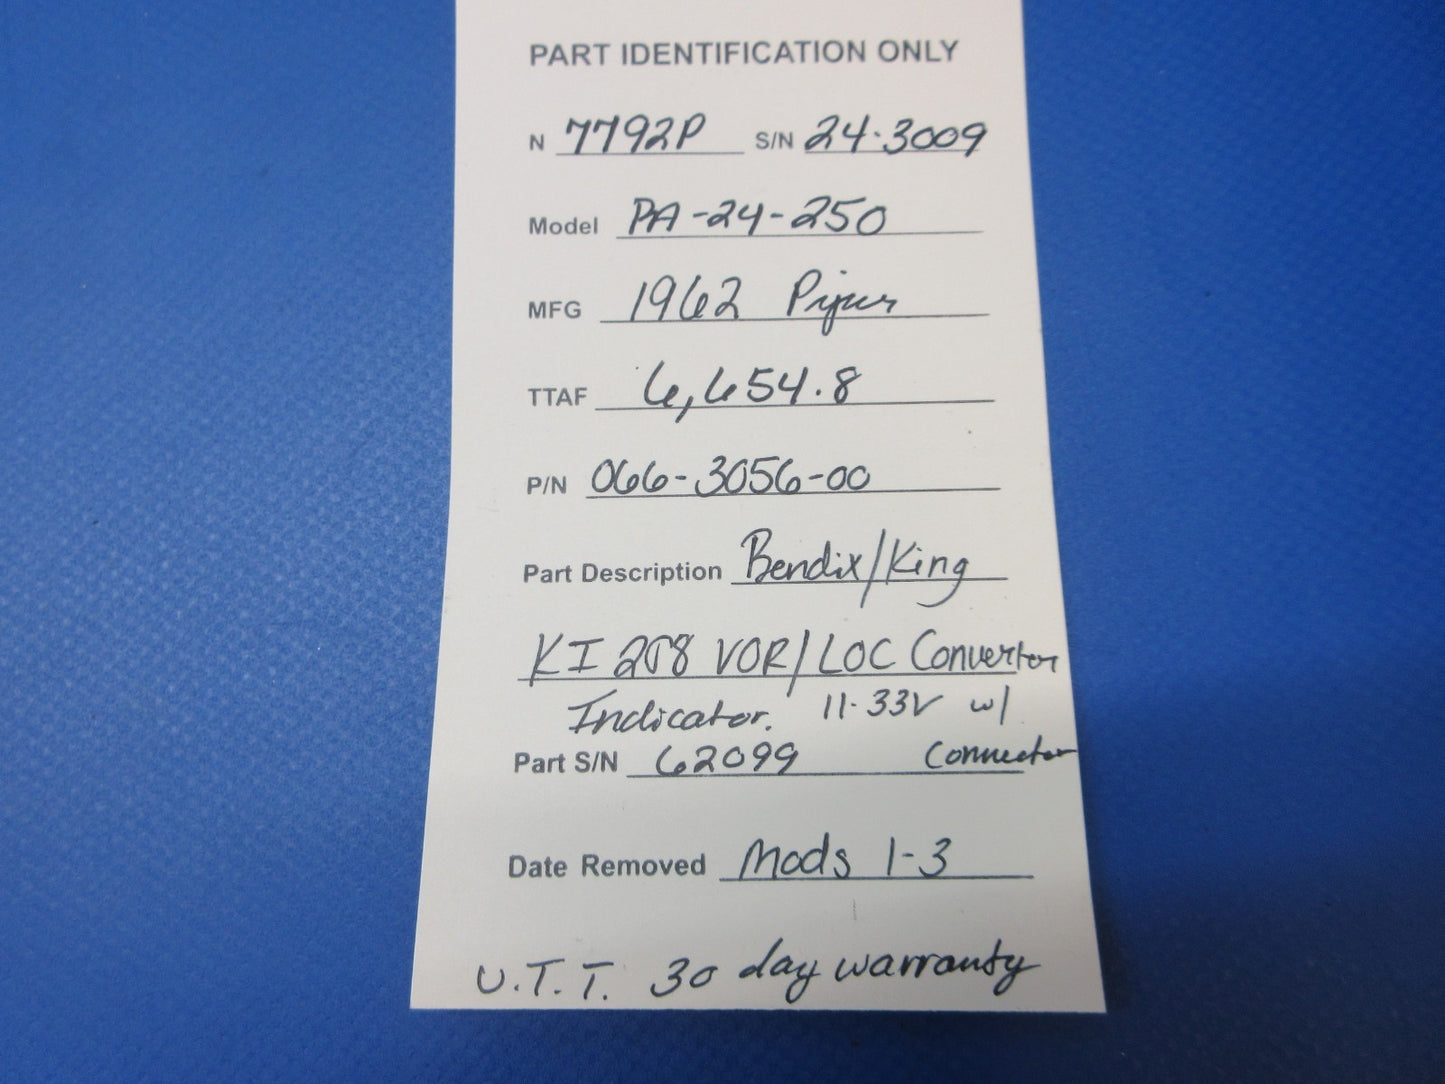 PART IDENTIFICATION ONLY
N 7792P S/N 24-3009
Model PA-24-250
MFG 1962 Piper
TTAF 6,654.8
P/N 066-3056-00
Part Description Bendix/King
KI 208 VOR/LOC Converter
Indicator. 11-33V w/
Part S/N 62099 Connector
Date Removed Mods 1-3
U.T.T. 30 day warranty